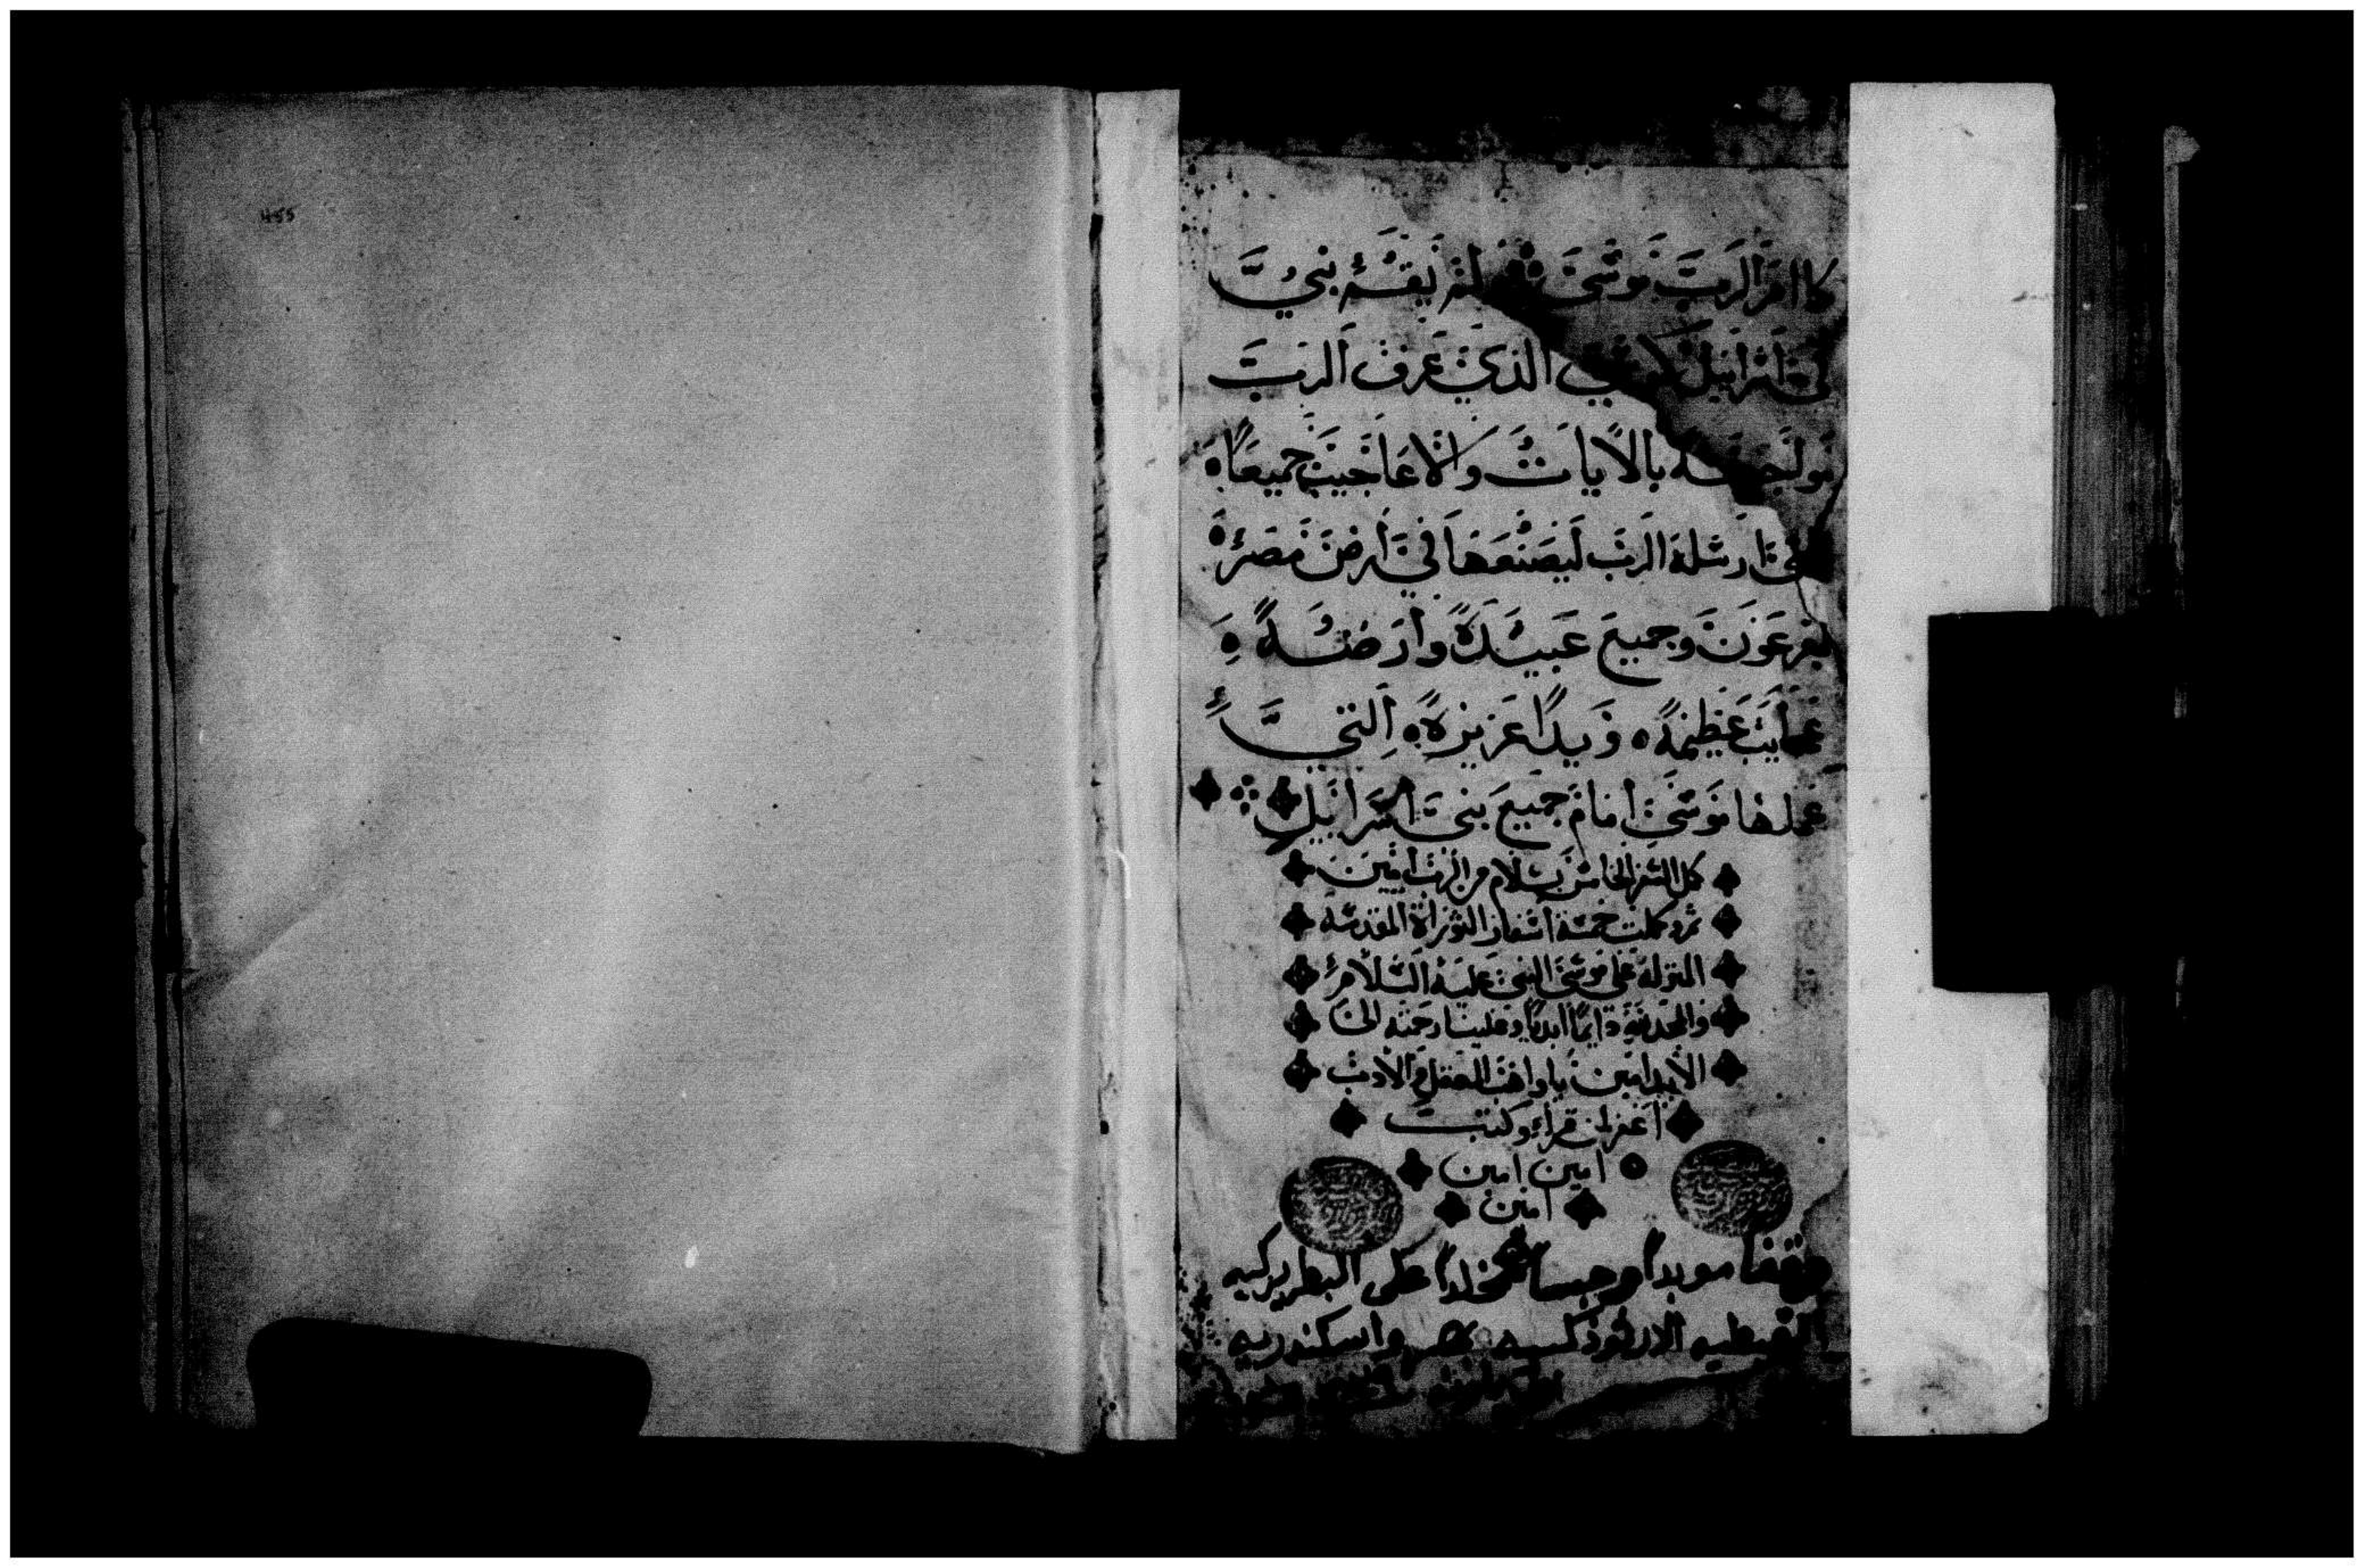 455
كما امر الرب موسى لم يقم نبي
في اسرائيل كموسى الذي عرف الرب
مواجهة بالايات والاعاجيب جميعا
التي ارسله الرب ليصنعها في ارض مصر
بفرعون وجميع عبيده وارضه
عجايب عظيمة ويدا عزيزة التي
عملها موسى امام جميع بني اسرائيل
كمل السفر الخامس بسلام من الرب امين
ثم وكملت خمسة اسفار التوراة المقدسة
المنزلة على موسى النبي عليه السلام
والمجد لله دايما ابديا وعلينا رحمته الى
الابد امين يا واهب العقل والادب
اغفر لمن قرا وكتب
امين امين
امين
وقفا موبدا وحبسا مخلدا على البطريركيه
القبطيه الارثوذكسيه بمصر واسكندريه